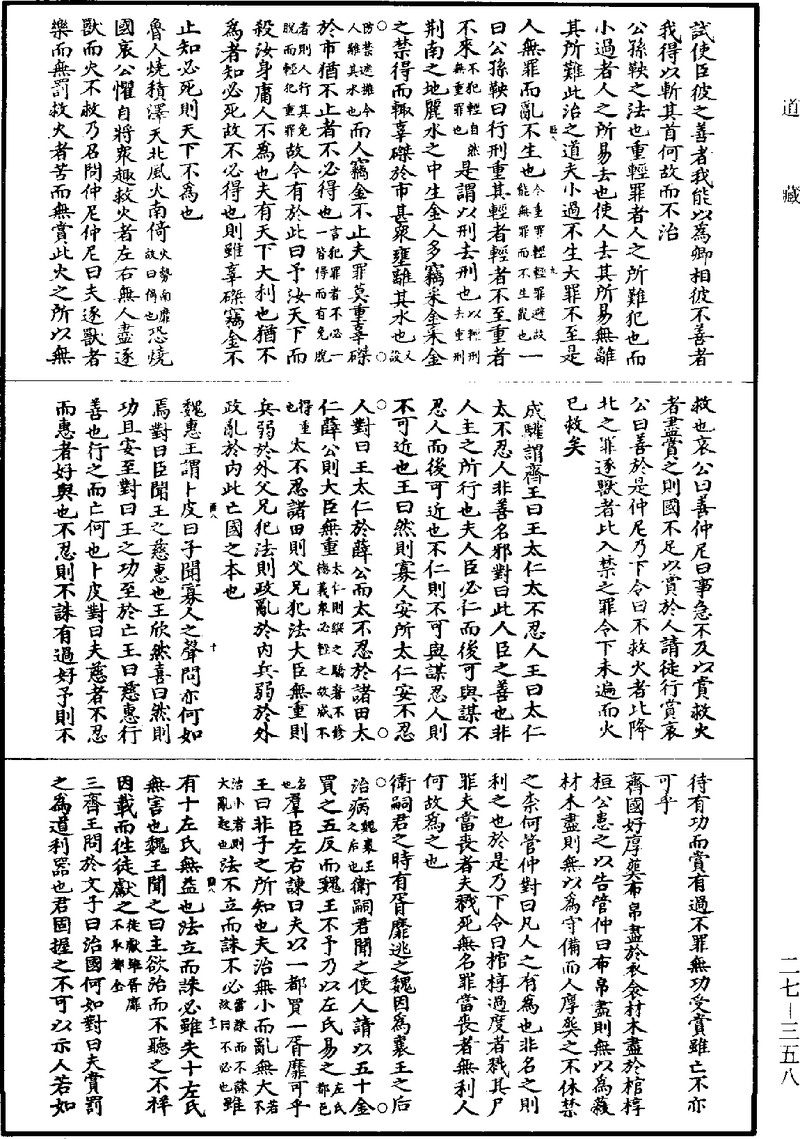 道藏
試使臣彼之善者我能以爲卿相彼不善者
我得以斬其首何故而不治
公孫鞅之法也重輕罪者人之所難犯也而
小過者人之所易去也使人去其所易無離
其所難此治之道夫小過不生大罪不至是
人無罪而亂不生也今重罪輕輕罪避故一能無罪而不生亂也
曰公孫鞅曰行刑重其輕者輕者不至重者
不來不犯輕自然無重罪也是謂以刑去刑也以輕刑去重刑
荆南之地麗水之中生金人多竊采金采金
之禁得而輒辜磔於市甚衆壅離其水也又設
防禁遮擁令人離其水也而人竊金不止夫罪莫重辜磔
於市猶不止者不必得也言犯罪者不必一一皆得而有免脫
者則人行其免脫而輕犯重罪故令有於此曰予汝天下而
殺汝身庸人不爲也夫有天下大利也猶不
爲者知必死故不必得也則雖辜磔竊金不
止知必死則天下不爲也
魯人燒積澤天北風火南倚火勢南靡故曰倚也恐燒
國哀公懼自將衆趣救火者左右無人盡逐
獸而火不救乃召問仲尼仲尼曰夫逐獸者
樂而無罰救火者苦而無賞此火之所以無
救也哀公曰善仲尼曰事急不及以賞救火
者盡賞之則國不足以賞於人請徒行賞哀
公曰善於是仲尼乃下令曰不救火者比降
北之罪逐獸者比入禁之罪令下未遍而火
已救矣
成驩謂齊王曰王太仁太不忍人王曰太仁
太不忍人非善名邪對曰此人臣之善也非
人主之所行也夫人臣必仁而後可與謀不
忍人而後可近也不仁則不可與謀忍人則
不可近也王曰然則寡人安所太仁安不忍
人對曰王太仁於薛公而太不忍於諸田太
仁薛公則大臣無重太仁則縱之驕奢不修德義衆必輕之故威不
得重也太不忍諸田則父兄犯法大臣無重則
兵弱於外父兄犯法則政亂於內兵弱於外
政亂於內此亡國之本也
魏惠王謂卜皮曰子聞寡人之聲問亦何如
焉對曰臣聞王之慈惠也王欣然喜曰然則
功且安至對曰王之功至於亡王曰慈惠行
善也行之而亡何也卜皮對曰夫慈者不忍
而惠者好與也不忍則不誅有過好予則不
待有功而賞有過不罪無功受賞雖亡不亦
可乎
齊國好厚葬布帛盡於衣衾材木盡於棺椁
桓公患之以告管仲曰布帛盡則無以爲蔽
材木盡則無以爲守備而人厚葬之不休禁
之柰何管仲對曰凡人之有爲也非名之則
利之也於是乃下令曰棺椁過度者戮其尸
罪夫當喪者夫戮死無名罪當喪者無利人
何故爲之也
衛嗣君之時有胥靡逃之魏因爲襄王之后
治病魏襄王之后也衛嗣君聞之使人請以五十金
買之五反而魏王不予乃以左氏易之左氏都邑
名也羣臣左右諫曰夫以一都買一胥靡可乎
王曰非子之所知也夫治無小而亂無大若不
治小者則大亂起也法不立而誅不必當誅而不誅故曰不必也雖
有十左氏無益也法立而誅必雖失十左氏
無害也魏王聞之曰主欲治而不聽之不祥
因載而往徒獻之徒獻雖胥靡不取都金
三齊王問於文子曰治國何如對曰夫賞罰
之爲道利器也君固握之不可以示人若如
二七—三五八